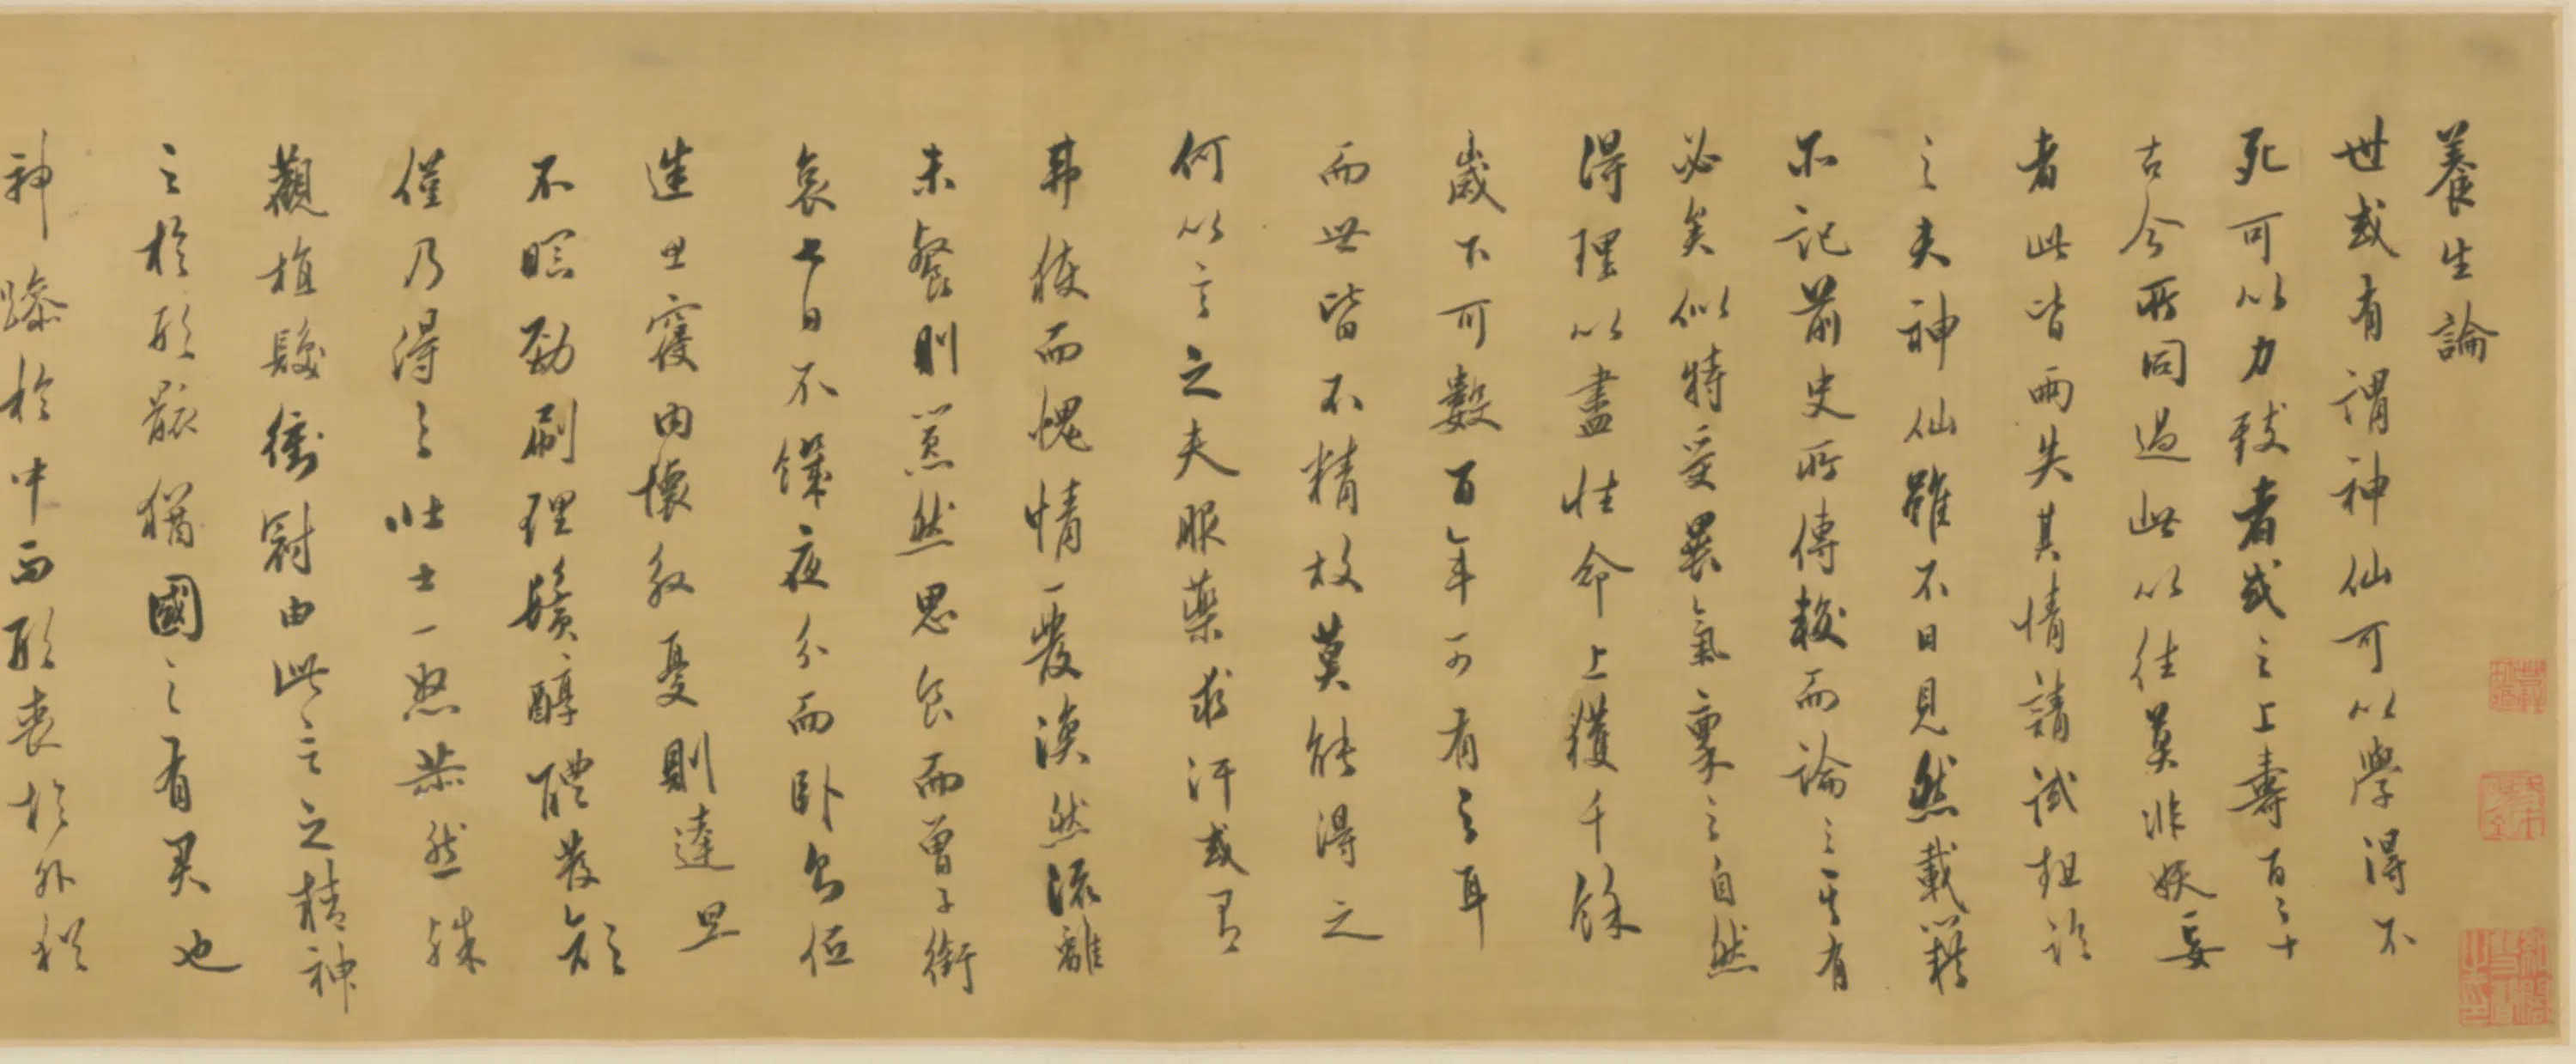 養生論
世或有謂神仙可以學得不
死可以力致者或云上壽百二十
古今所同過此以往莫非妖妄
者此皆兩失其情請試粗論
之夫神仙雖不目見然載籍
所記前史所傳較而論之其有
必矣似特受異氣稟之自然
得理以盡性命上獲千餘
歲下可數百年可有之耳
而世皆不精故莫能得之
何以言之夫服藥求汗或有
弗獲而愧情一發渙然流離
未餐則囂然思食而曾子銜
哀七日不饑夜分而卧則低
迷思寢內懷殷憂則達旦
不瞑勁刷理鬢醇醴發顏
僅乃得之壯士一怒赫然殊
觀植髮衝冠由此言之精神
之於形骸猶國之有君也
神躁於中而形喪於外猶